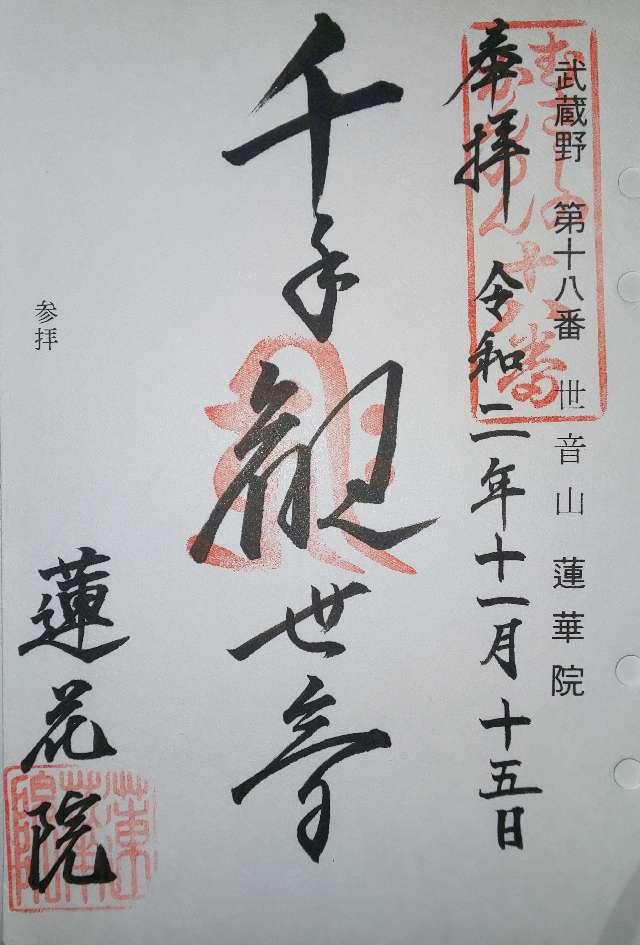 武蔵野 第十八番 世音山 蓮華院
むさしの
かんのん十八番
奉拝 令和二年十一月十五日
千手観世音
蓮花院
蓮華院
参拝